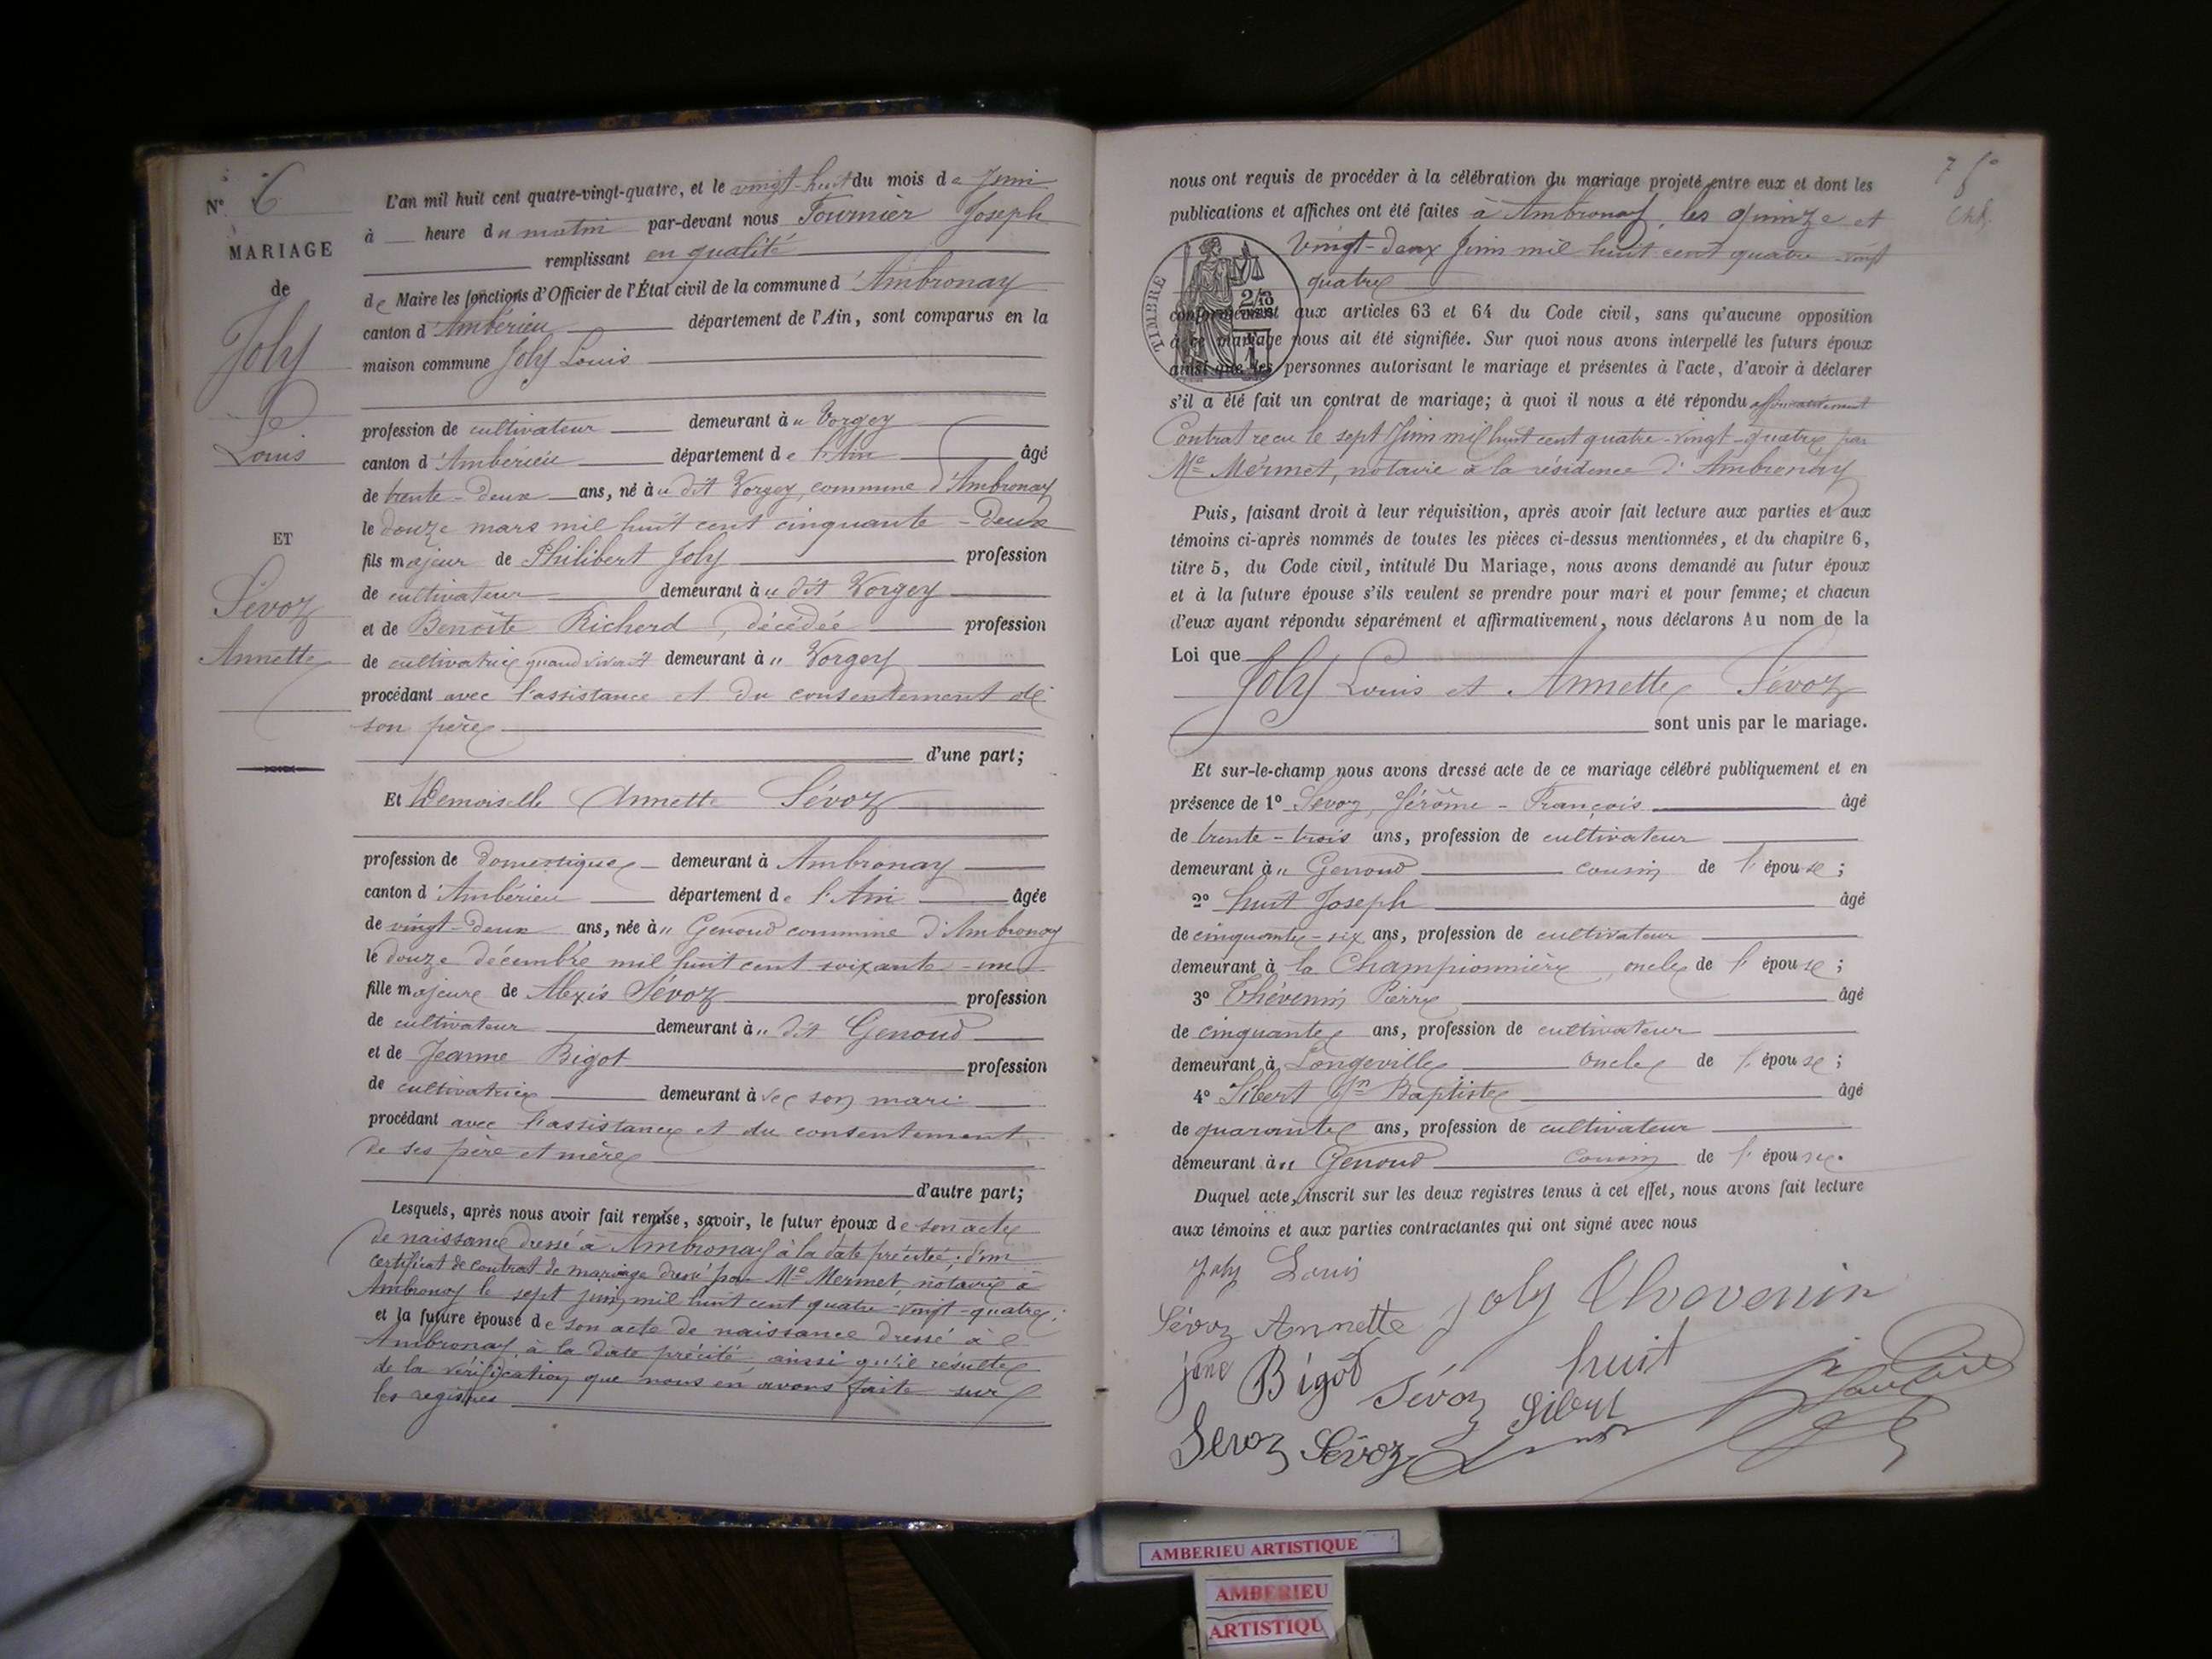 N° 6
MARIAGE
de
Joly
Louis
ET
Sévoz
Annette
L'an mil huit cent quatre-vingt-quatre, et le vingt-huit du mois de Juin
à heure du matin par-devant nous Fournier Joseph
remplissant en qualité
de Maire les fonctions d'Officier de l'État civil de la commune d'Ambronay
canton d'Ambérieu département de l'Ain, sont comparus en la
maison commune Joly Louis
profession de cultivateur demeurant à " Vorgey
canton d'Ambérieu département de l'Ain âgé
de trente-deux ans, né à " dit Vorgey, commune d'Ambronay
le douze mars mil huit cent cinquante-deux
fils majeur de Philibert Joly profession
de cultivateur demeurant à " dit Vorgey
et de Benoîte Richerd, décédée profession
de cultivatrice quand vivait demeurant à " Vorgey
procédant avec l'assistance et du consentement de
son père
d'une part;
Et Demoiselle Annette Sévoz
profession de domestique demeurant à Ambronay
canton d'Ambérieu département de l'Ain âgée
de vingt-deux ans, née à " Genoud commune d'Ambronay
le douze décembre mil huit cent soixante-un
fille majeure de Alexis Sévoz profession
de cultivateur demeurant à " dit Genoud
et de Jeanne Bigot profession
de cultivatrice demeurant avec son mari
procédant avec l'assistance et du consentement
de ses père et mère
d'autre part;
Lesquels, après nous avoir fait remise, savoir, le futur époux de son acte
de naissance dressé à Ambronay à la date précitée; d'un
certificat de contrat de mariage dressé par Me Mermet, notaire à
Ambronay le sept juin mil huit cent quatre-vingt-quatre;
et la future épouse de son acte de naissance dressé à
Ambronay, à la date précité, ainsi qu'il résulte
de la vérification que nous en avons faite sur
les registres
nous ont requis de procéder à la célébration du mariage projeté entre eux et dont les
publications et affiches ont été faites à Ambronay, les quinze et
vingt-deux Juin mil huit cent quatre-vingt
quatre
TIMBRE
2/10
conformément aux articles 63 et 64 du Code civil, sans qu'aucune opposition
à ce mariage nous ait été signifiée. Sur quoi nous avons interpellé les futurs époux
ainsi que les personnes autorisant le mariage et présentes à l'acte, d'avoir à déclarer
s'il a été fait un contrat de mariage; à quoi il nous a été répondu affirmativement
Contrat recu le sept Juin mil huit cent quatre-vingt-quatre par
Me Mermet, notaire à la résidence d'Ambronay
Puis, faisant droit à leur réquisition, après avoir fait lecture aux parties et aux
témoins ci-après nommés de toutes les pièces ci-dessus mentionnées, et du chapitre 6,
titre 5, du Code civil, intitulé Du Mariage, nous avons demandé au futur époux
et à la future épouse s'ils veulent se prendre pour mari et pour femme; et chacun
d'eux ayant répondu séparément et affirmativement, nous déclarons Au nom de la
Loi que
Joly Louis et Annette Sévoz
sont unis par le mariage.
Et sur-le-champ nous avons dressé acte de ce mariage célébré publiquement et en
présence de 1° Sevoz, Jérôme-François âgé
de trente-trois ans, profession de cultivateur
demeurant à " Genoud cousin de l'épouse;
2° huit Joseph âgé
de cinquante-six ans, profession de cultivateur
demeurant à la Championnière, oncle de l'épouse;
3° Thévenin Pierre âgé
de cinquante ans, profession de cultivateur
demeurant à Longeville oncle de l'épouse;
4° Sibert Jn Baptiste âgé
de quarante ans, profession de cultivateur
demeurant à " Genoud cousin de l'épouse.
Duquel acte, inscrit sur les deux registres tenus à cet effet, nous avons fait lecture
aux témoins et aux parties contractantes qui ont signé avec nous
Joly Louis
Sévoz Annette Joly Thvevenin
jene Bigot Sévoz huit
Sibert
Sevoz Sévoz
AMBERIEU ARTISTIQUE
AMBERIEU
ARTISTIQU